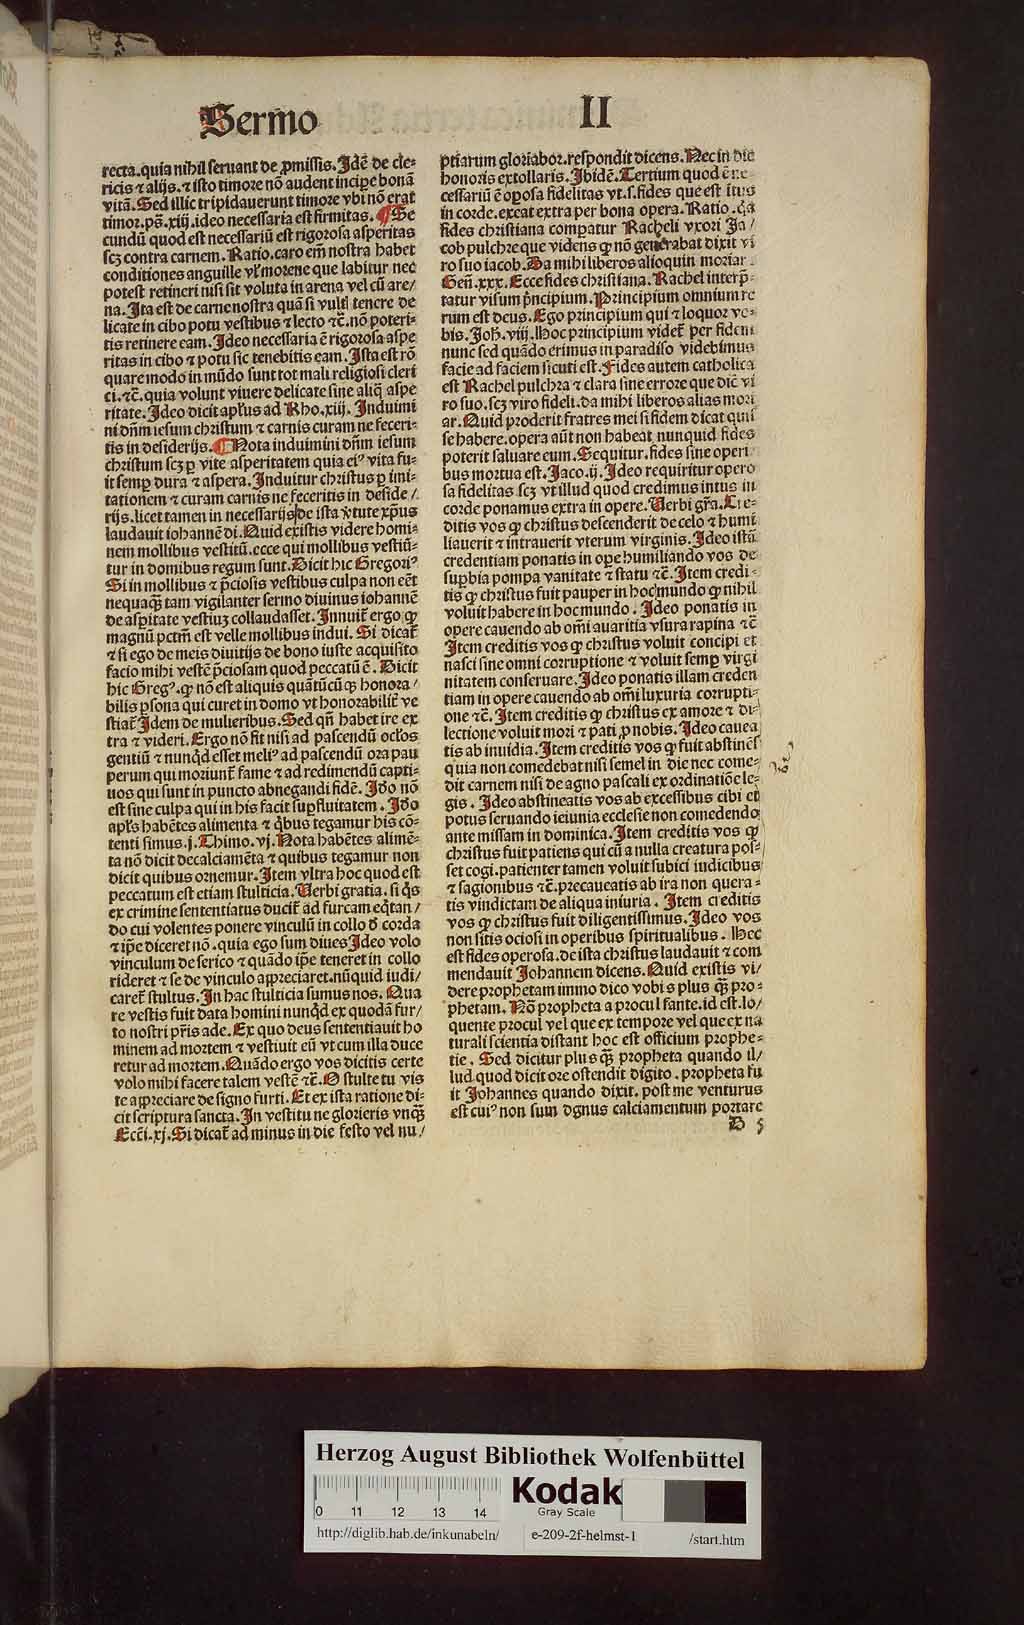 Sermo II
recta.quia nihil seruant de ꝓmissis.Idē de cle⸗
ricis ⁊ alijs.⁊ isto timore nō audent incipe bonā
vitā.Sed illic trepidauerunt timore vbi nō erat
timor.ps̄.xiij.ideo necessaria est firmitas.¶Se
cundū quod est necessariū est rigorosa asperitas
scꝫ contra carnem.Ratio.caro em̄ nostra habet
conditiones anguille vl̓ morene que labitur nec
potest retineri nisi sit voluta in arena vel cū are/
na.Ita est de carne nostra quā si vultꝭ tenere de
licate in cibo potu vestibus ⁊ lecto ⁊c̄.nō poteri⸗
tis retinere eam.Ideo necessaria ē rigorosa aspe
ritas in cibo ⁊ potu sic tenebitis eam.Ista est rō
quare modo in mūdo sunt tot mali religiosi cleri
ci.⁊c̄.quia volunt viuere delicate sine aliq̄ aspe
ritate.Ideo dicit apl̓us ad Rho.xiij.Induimi
ni dn̄m iesum christum ⁊ carnis curam ne feceri⸗
tis in desiderijs.¶Nota induimini dn̄m iesum
christum scꝫ ꝑ vite asperitatem quia eiꝰ vita fu⸗
it semꝑ dura ⁊ aspera.Induitur christus ꝑ imi⸗
tationem ⁊ curam carnis ne feceritis in deside/
rijs.licet tamen in necessarijs de ista v̓tute xp̄us
laudauit iohannē di.Quid existis videre homi⸗
nem mollibus vestitū.ecce qui mollibus vestiū⸗
tur in domibus regum sunt.Dicit hic Gregoriꝰ
Si in mollibus ⁊ p̄ciosis vestibus culpa non eēt
nequaqꝫ tam vigilanter sermo diuinus iohannē
de asꝑitate vestiuꝫ collaudasset.Innuit̄ ergo ꝙ
magnū pctm̄ est velle mollibus indui.Si dicat̄
⁊ si ego de meis diuitijs de bono iuste acquisito
facio mihi vestē p̄ciosam quod peccatū ē.Dicit
hic Gregꝰ.ꝙ nō est aliquis quātūcūqꝫ honora/
bilis ꝑsona qui curet in domo vt honorabilit̄ ve
stiat̄ Idem de mulieribus.Sed qn̄ habet ire ex
tra ⁊ videri.Ergo nō fit nisi ad pascendū ocl̓os
gentiū ⁊ nunqͥd esset meliꝰ ad pascendū ora pau
perum qui moriunt̄ fame ⁊ ad redimendū capti⸗
uos qui sunt in puncto abnegandi fidē.Idō nō
est sine culpa qui in his facit suꝑfluitatem.Idō
apl̓s habētes alimenta ⁊ qͥbus tegamur his cō⸗
tenti simus.j.Thimo.vj.Nota habētes alimē⸗
ta nō dicit decalciamēta ⁊ quibus tegamur non
dicit quibus ornemur.Item vltra hoc quod est
peccatum est etiam stulticia.Verbi gratia.si qͥs
ex crimine sententiatus ducit̄ ad furcam eqͥtan/
do cui volentes ponere vinculū in collo ð corda
⁊ ip̄e diceret nō.quia ego sum diues Ideo volo
vinculum de serico ⁊ quādo ip̄e teneret in collo
rideret ⁊ se de vinculo appreciaret.nūquid iudi/
caret̄ stultus.In hac stulticia sumus nos.Qua
re vestis fuit data homini nunqͥd ex quodā fur/
to nostri pr̄is ade.Ex quo deus sententiauit ho
minem ad mortem ⁊ vestiuit eū vt cum illa duce
retur ad mortem.Quādo ergo vos dicitis certe
volo mihi facere talem vestē ⁊c̄.O stulte tu vis
te appreciare de signo furti.Et ex ista ratione di⸗
cit scriptura sancta.In vestitu ne glorieris vnqꝫ
Ecc̄i.xj.Si dicat̄ ad minus in die festo vel nu/
ptiarum gloriabor.respondit dicens.Nec in die
honoris extollaris.Ibidē.Tertium quod ē ne⸗
cessariū ē oꝑosa fidelitas vt.s.fides que est itus
in corde.exeat extra per bona opera.Ratio.qͣa
fides christiana comꝑatur Racheli vxori Ja/
cob pulchre que videns ꝙ nō generabat dixit vi
ro suo iacob.Da mihi liberos alioquin moriar.
Gen̄.xxx.Ecce fides christiana.Rachel interp̄⸗
tatur visum pͥncipium.Principium omnium re
rum est deus.Ego principium qui ⁊ loquor vo⸗
bis.Joh̄.viij.Hoc principium videt̄ per fidem
nunc sed quādo erimus in paradiso videbimus
facie ad faciem sicuti est.Fides autem catholica
est Rachel pulchra ⁊ clara sine errore que dic̄ vi
ro suo.scꝫ viro fideli.da mihi liberos alias mori
ar.Quid proderit fratres mei si fidem dicat quis
se habere.opera aūt non habeat nunquid fides
poterit saluare eum.Sequitur.fides sine operi
bus mortua est.Jaco.ij.Ideo requiritur opero
sa fidelitas scꝫ vt illud quod credimus intus in
corde ponamus extra in opere.Verbi gr̄a.Cre⸗
ditis vos ꝙ christus descenderit de celo ⁊ humi
liauerit ⁊ intrauerit vterum virginis.Ideo istā
credentiam ponatis in oꝑe humiliando vos de
suꝑbia pompa vanitate ⁊ statu ⁊c̄.Item credi⸗
tis ꝙ christus fuit pauper in hoc mundo ꝙ nihil
voluit habere in hoc mundo.Ideo ponatis in
opere cauendo ab om̄i auaritia vsura rapina ⁊c̄
Item creditis vos ꝙ christus voluit concipi et
nasci sine omni corruptione ⁊ voluit semꝑ virgi
nitatem conseruare.Ideo ponatis illam creden
tiam in opere cauendo ab om̄i luxuria corrupti⸗
one ⁊c̄.Item creditis ꝙ christus ex amore ⁊ di⸗
lectione voluit mori ⁊ pati ꝓ nobis.Ideo cauea
tis ab inuidia.Item creditis vos ꝙ fuit abstinēs
quia non comedebat nisi semel in die nec come⸗
dit carnem nisi de agno pascali ex ordinatiōe le⸗
gis.Ideo abstineatis vos ab excessibus cibi et
potus seruando ieiunia ecclesie non comedendo
ante missam in dominica.Item creditis vos ꝙ
christus fuit patiens qui cū a nulla creatura pos⸗
set cogi.patienter tamen voluit subici iudicibus
⁊ sagionibus ⁊c̄.precaueatis ab ira non quera⸗
tis vindictam de aliqua iniuria.Item creditis
vos ꝙ christus fuit diligentissimus.Ideo vos
non sitis ociosi in operibus spiritualibus.Hec
est fides operosa.de ista christus laudauit ⁊ com
mendauit Johannem dicens.Quid existis vi/
dere prophetam immo dico vobis plus qꝫ pro⸗
phetam.Nō propheta a procul fante.id est.lo/
quente procul vel que ex tempore vel que ex na
turali scientia distant hoc est officium prophe⸗
tie.Sed dicitur plus qꝫ propheta quando il/
lud quod dicit ore ostendit digito.propheta fu
it Johannes quando dixit.post me venturus
est cuiꝰ non sum dgnus calciamentum portare
D 5
Herzog August Bibliothek Wolfenbüttel
0 11 12 13 14
Kodak
Gray Scale
http://diglib.hab.de/inkunabeln/ e-209-2f-helmst-1 /start.htm